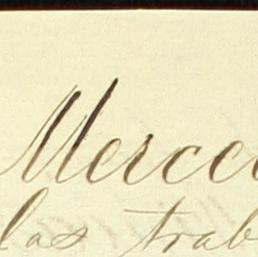 Merce
las trab